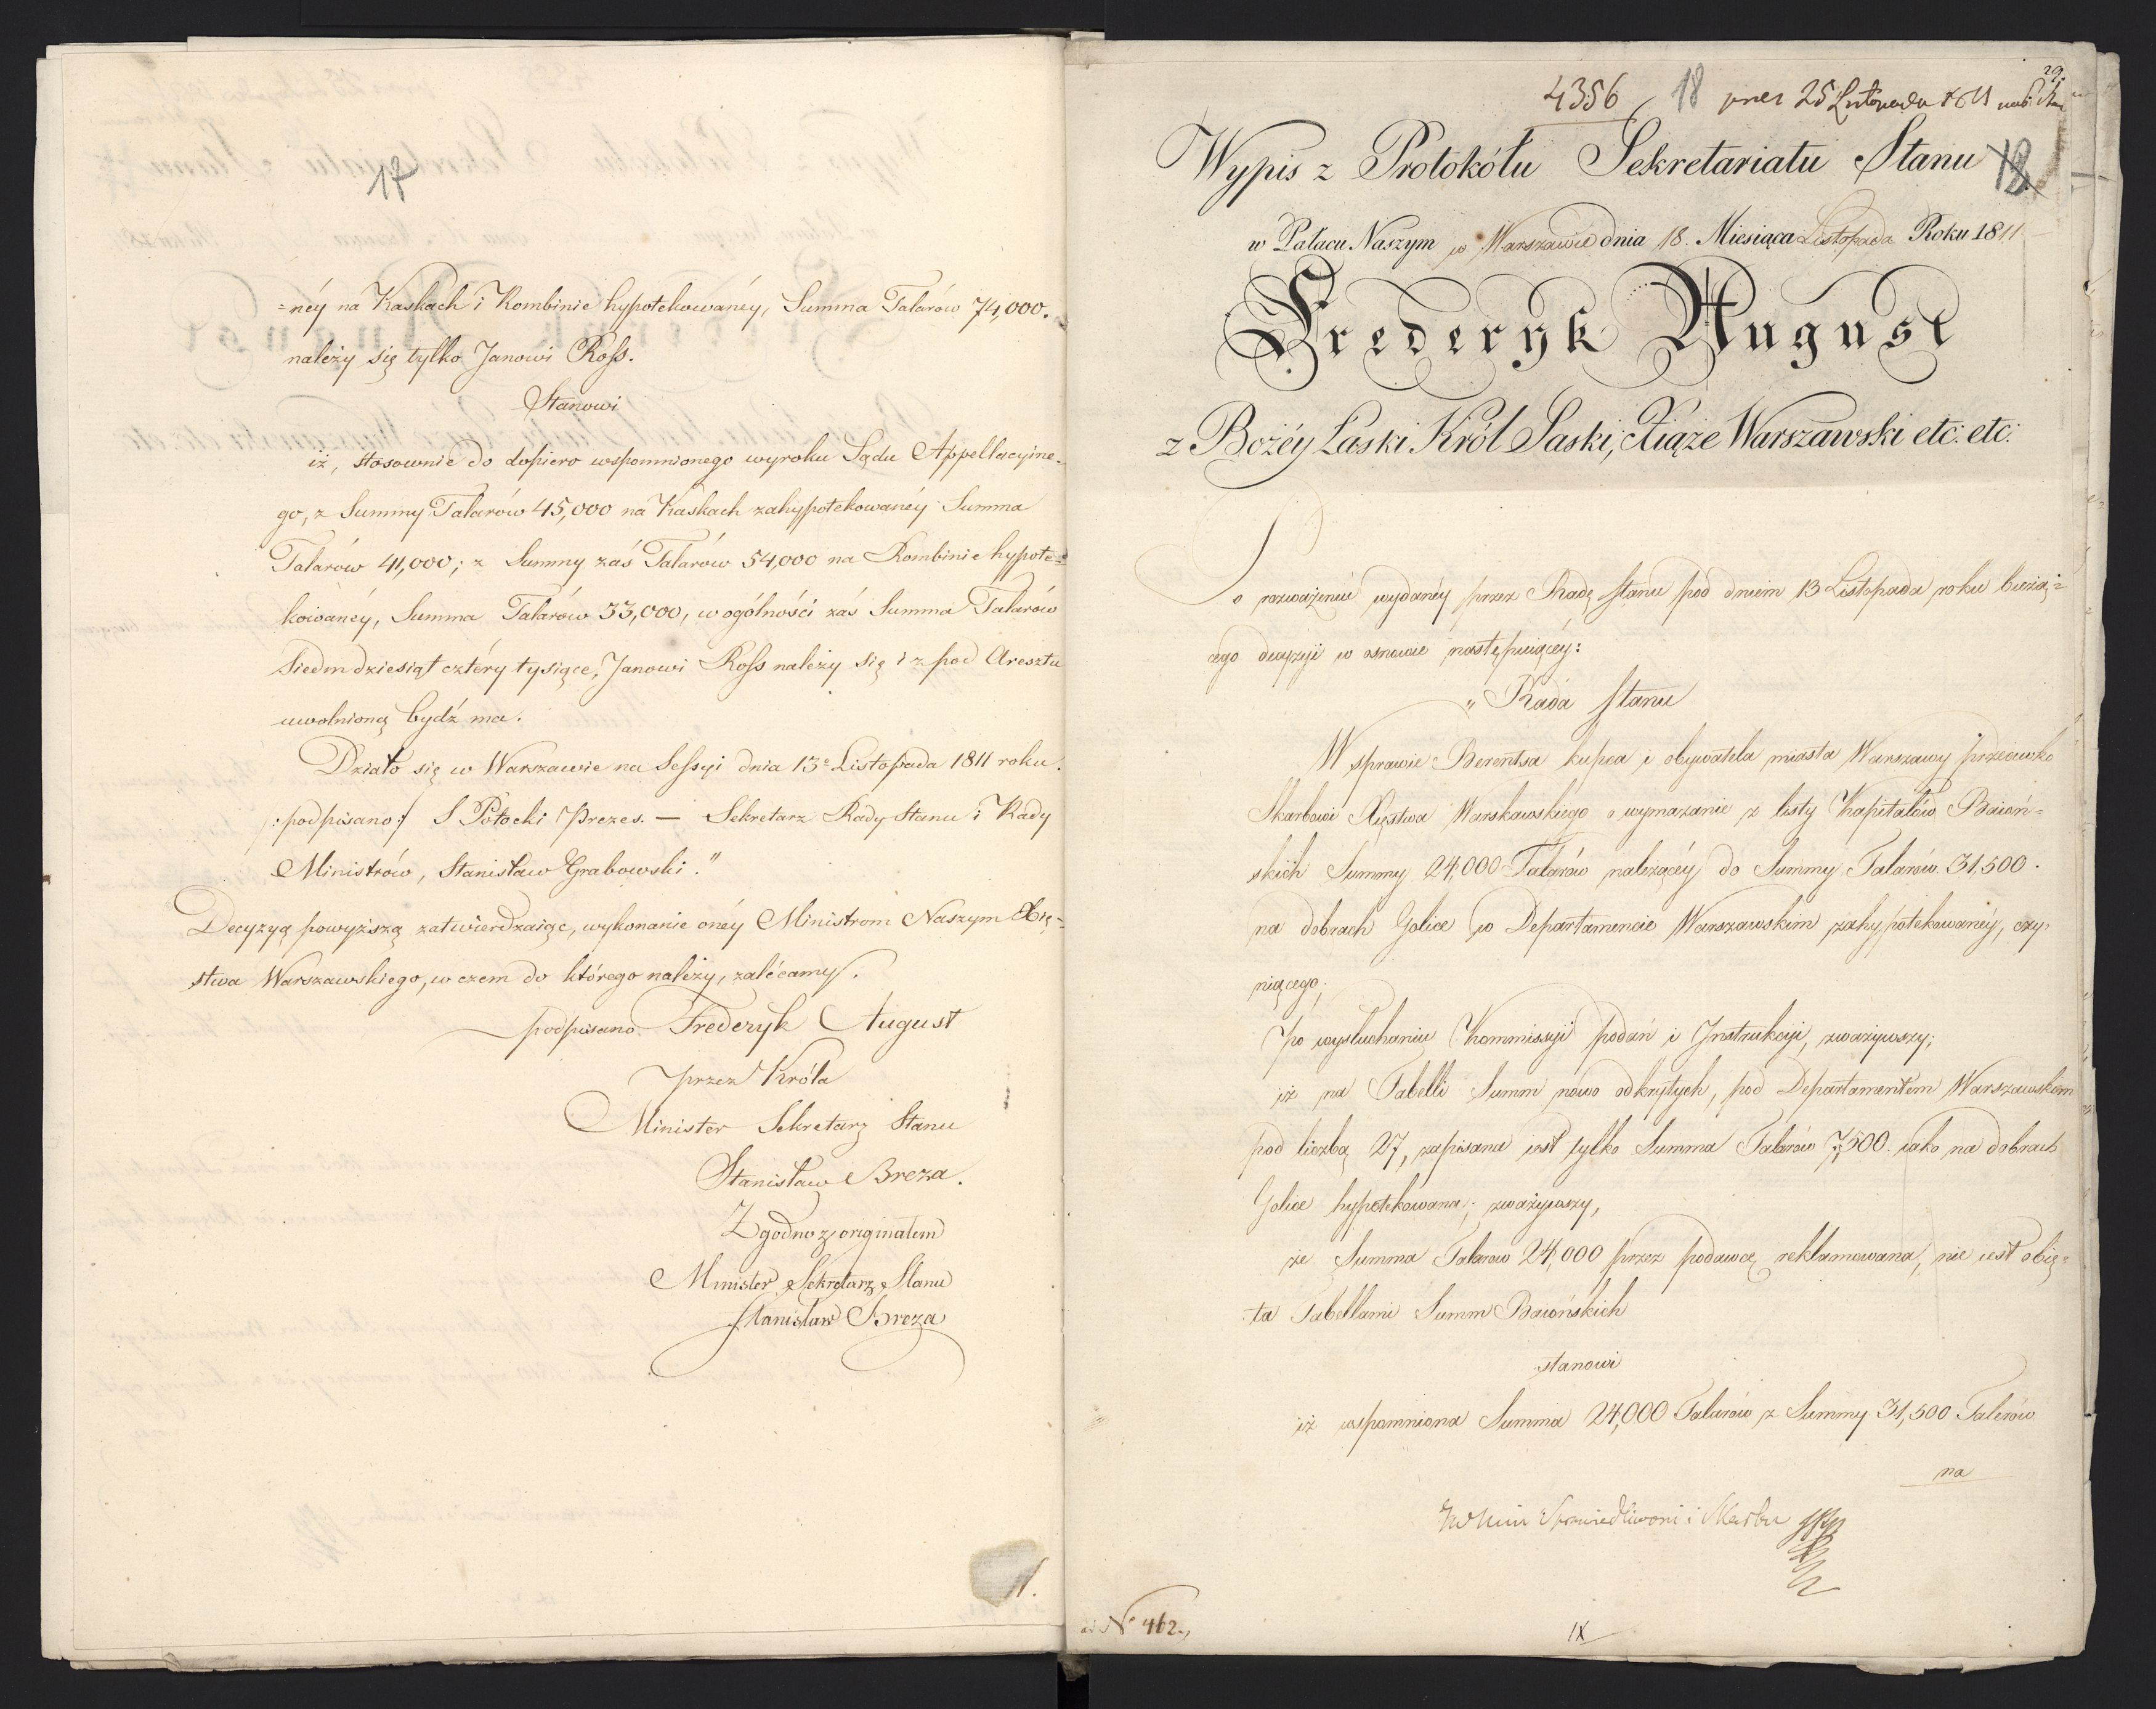 17
=néy na Kaskach i Kombinie hypotekowanéy, Summa Talarów 74,000.
należy się tylko Janowi Ross.
Stanowi
iż, stosownie do dopiero wspomnionego wyroku Sądu Appellacyine-
go, z Summy Talarów 45,000 na Kaskach zahypotekowanéy Summa
Talarów 41,000; z Summy zaś Talarów 54,000 na Kombinie hypote=
kowanéy, Summa Talarów 33,000, w ogólności zaś Summa Talarów
Siedmdziesiąt cztéry tysiące, Janowi Ross należy się i z pod Aresztu
uwolnioną bydź ma.
Działo się w Warszawie na Sessyi dnia 13e Listopada 1811 roku.
/:podpisano:/ S Potocki Prezes. — Sekretarz Rady Stanu i Rady
Ministrów, Stanisław Grabowski."
Decyzyą powyższą zatwierdzaiąc, wykonanie onéy Ministrom Naszym Xię-
stwa Warszawskiego, w czem do którego należy, zalécamy.
podpisano Frederyk August
przez Króla
Minister Sekretarz Stanu
Stanisław Breza.
Zgodno z originałem
Minister Sekretarz Stanu
Stanisław Breza
29.
4356 18 pres 25 Listopada 1811
Wypis z Protokółu Sekretariatu Stanu 18
w Pałacu Naszym w Warszawie dnia 18. Miesiąca Listopada Roku 1811
Frederyk August
z Bożéy Łaski Król Saski, Xiąże Warszawski etc: etc:
Po rozważeniu wydanéy przez Radę Stanu pod dniem 13 Listopada roku bieżą=
cego decyzyi w osnowie następuiącéy:
„Rada Stanu
W sprawie Berentsa kupca i obywatela miasta Warszawy przeciwko
Skarbowi Xięstwa Warskawskiego o wymazanie z listy Kapitałów Baioń=
skich Summy 24,000 Talarów należącéy do Summy Talarów 31,500.
na dobrach Golice w Departamencie Warszawskim zahypotekowanéy, czy-
niącego;
Po wysłuchaniu Kommissyi podań i Instrukcyi, zważywszy;
iż na Tabelli Summ nowo odkrytych, pod Departamentem Warszawskim
pod liczbą 27, zapisana iest tylko Summa Talarów 7,500. iako na dobrach
Golice hypotekowana; zważywszy,
że Summa Talarów 24,000 przez podawcę reklamowana, nie iest obię=
ta Tabellami Summ Baiońskich
stanowi
iż wspomniona Summa 24,000 Talarów z Summy 31,500 Talerów
na
Sprawiedliwości i Skarbu
No 462.
IX